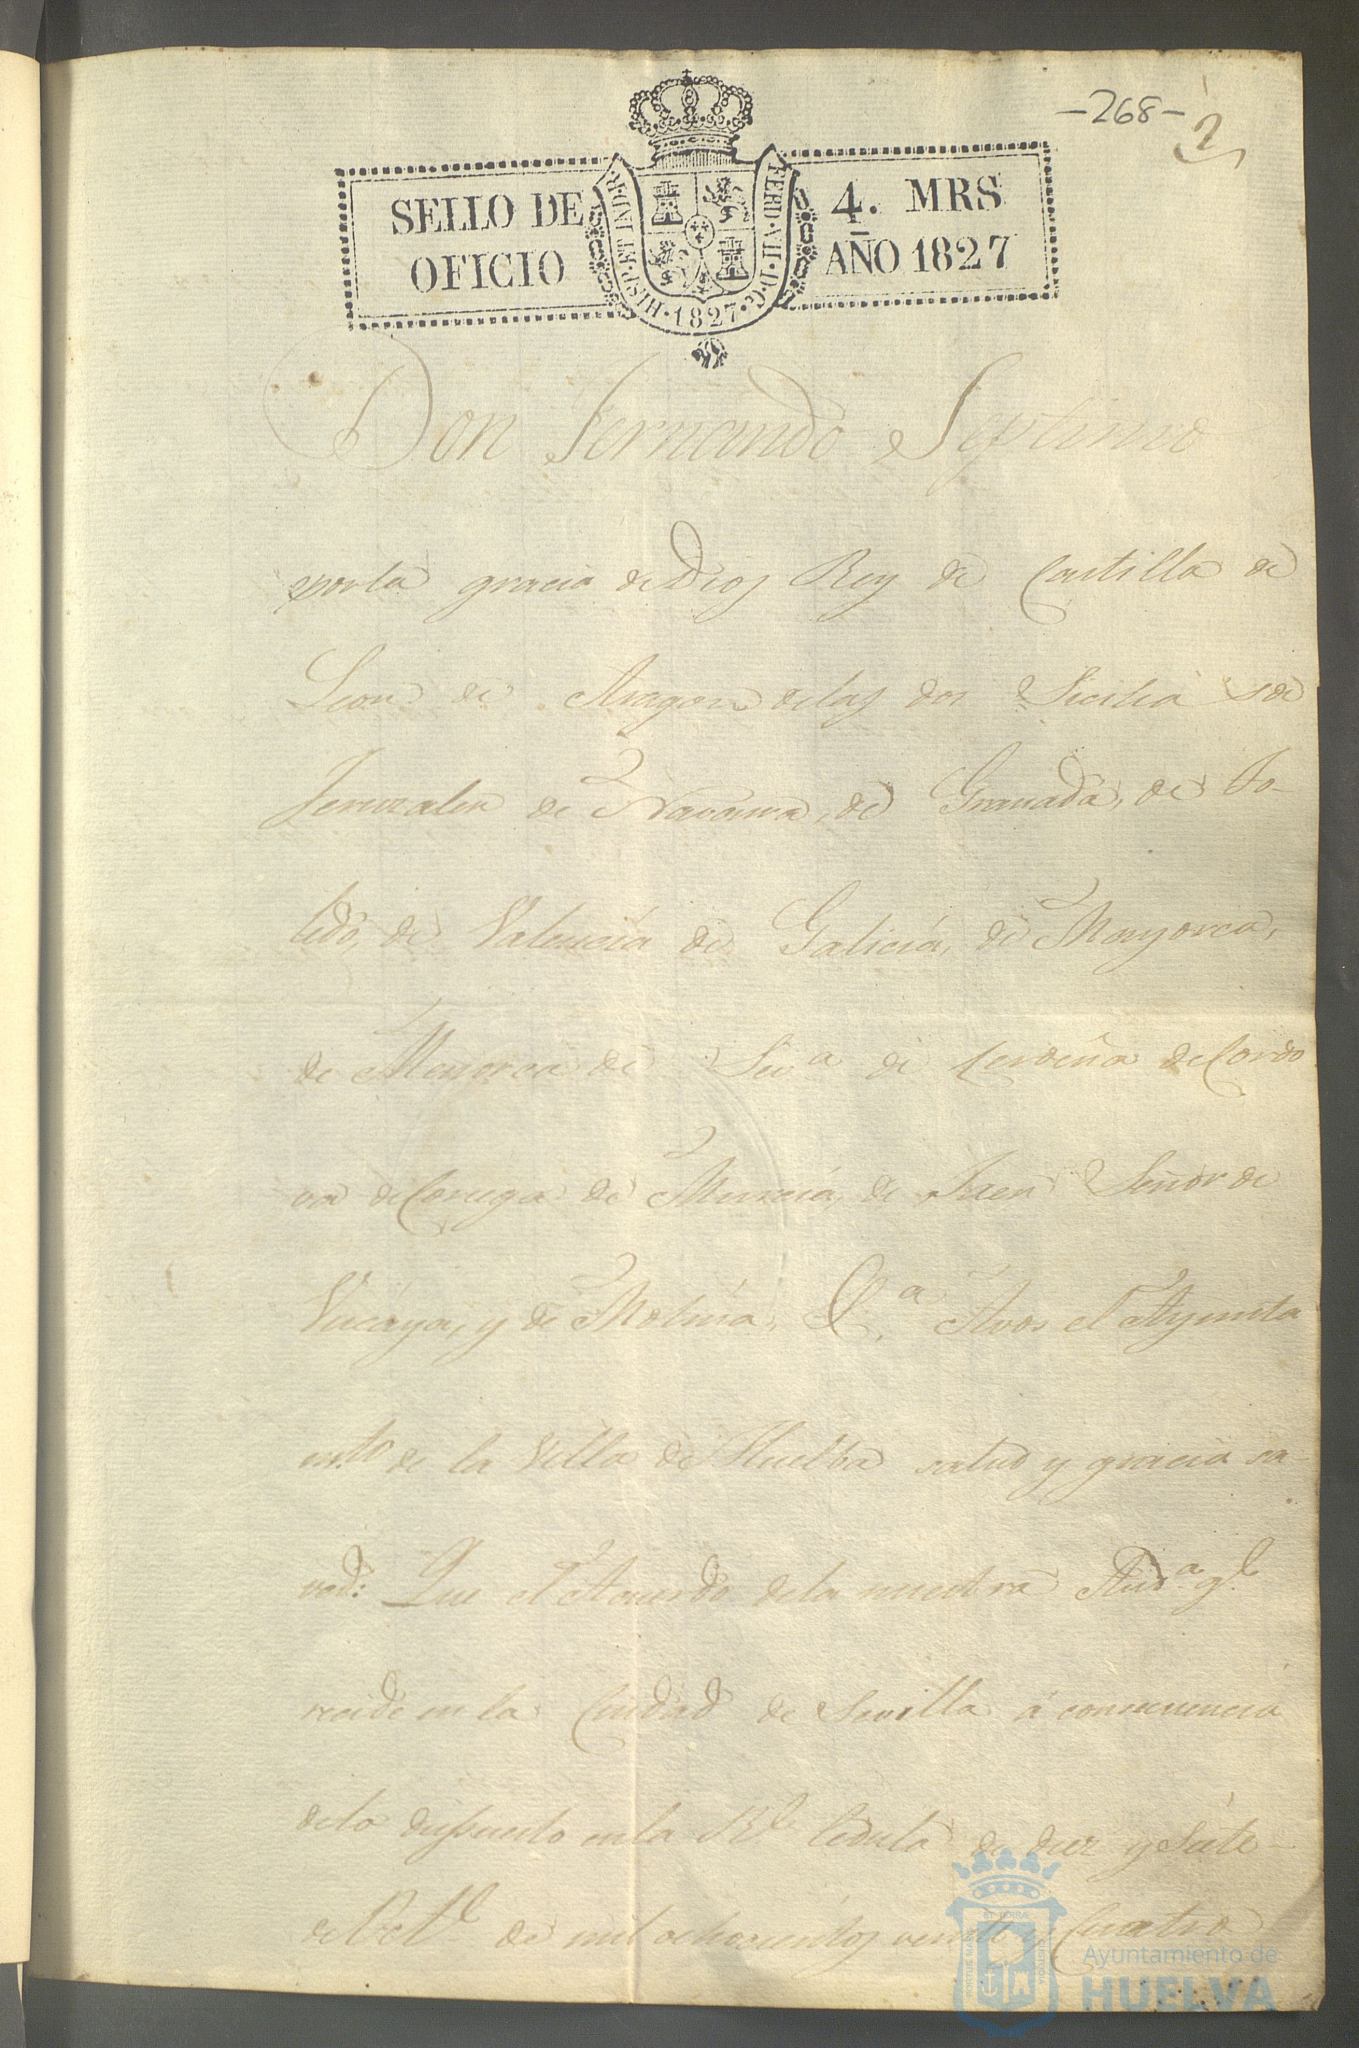 -268-
2
SELLO DE
OFICIO
HISP. ET IND. R.
1827
FERD. VII. D. G.
4. MRS
AÑO 1827
Don Fernando Septimo
por la gracia de Dios Rey de Castilla de
Leon de Aragon de las dos Sicilia s de
Jeruzalen de Navarra, de Granada, de To-
ledo, de Valencia de Galicia, de Mayorca,
de Menorca de Sev.a de Cerdeña de Cordo
va de Corcega de Murcia, de Jaen Señor de
Vizcaya, y de Molina, &.a A vos el Ayunta
m.to de la Villa de Huelba salud y gracia sa-
ved: Que el Acuerdo de la nuestra Aud.a q.e
recide en la Ciudad de Sevilla á consecuencia
de lo dispuesto en la Rl. Cedula de diez y siete
de Oct.e de mil ochocientos veinte y cuatro
Ayuntamiento de
HUELVA